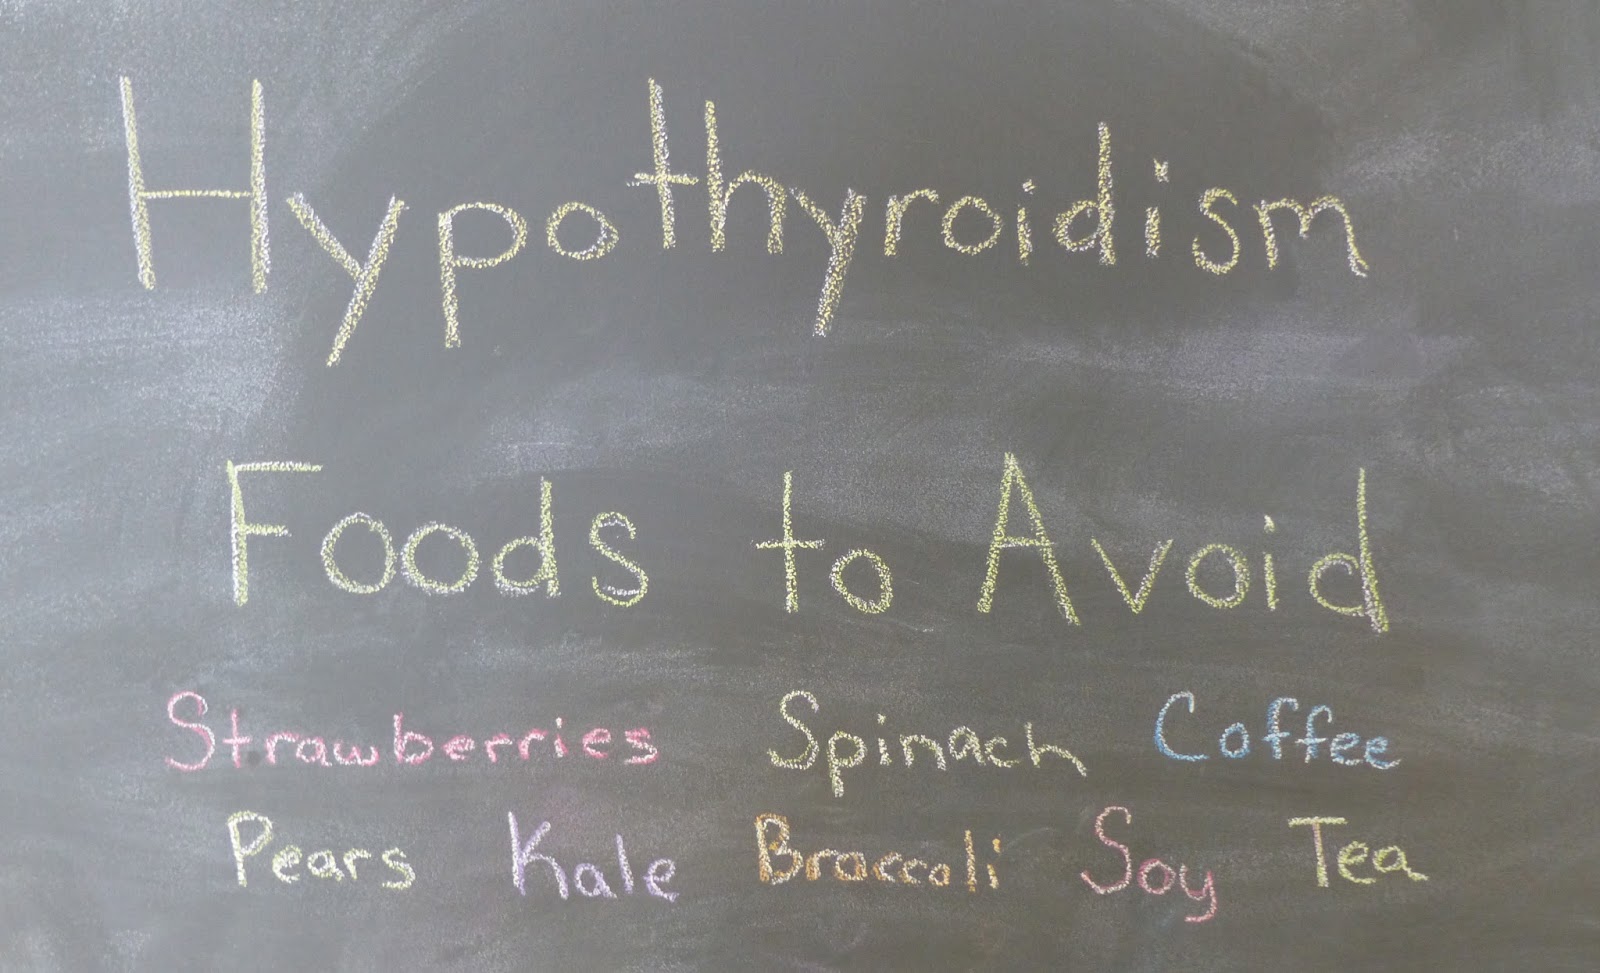 Hypothyroidism
Foods to Avoid
Strawberries Spinach Coffee
Pears Kale Broccoli Soy Tea